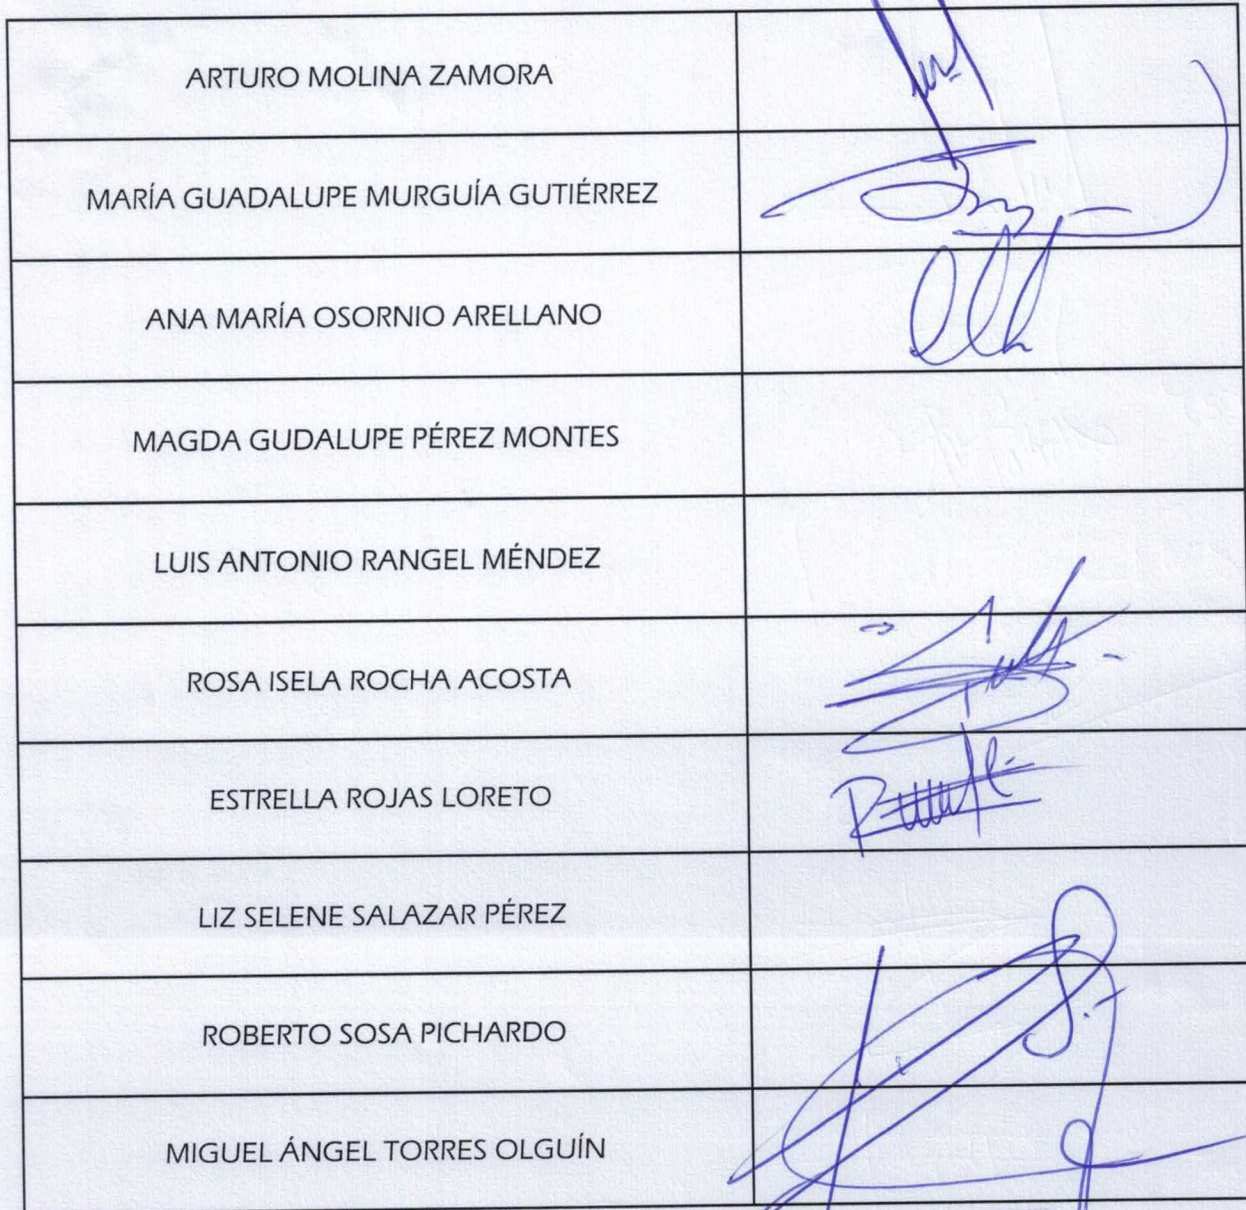 ARTURO MOLINA ZAMORA
MARÍA GUADALUPE MURGUÍA GUTIÉRREZ
ANA MARÍA OSORNIO ARELLANO
MAGDA GUDALUPE PÉREZ MONTES
LUIS ANTONIO RANGEL MÉNDEZ
ROSA ISELA ROCHA ACOSTA
ESTRELLA ROJAS LORETO
LIZ SELENE SALAZAR PÉREZ
ROBERTO SOSA PICHARDO
MIGUEL ÁNGEL TORRES OLGUÍN